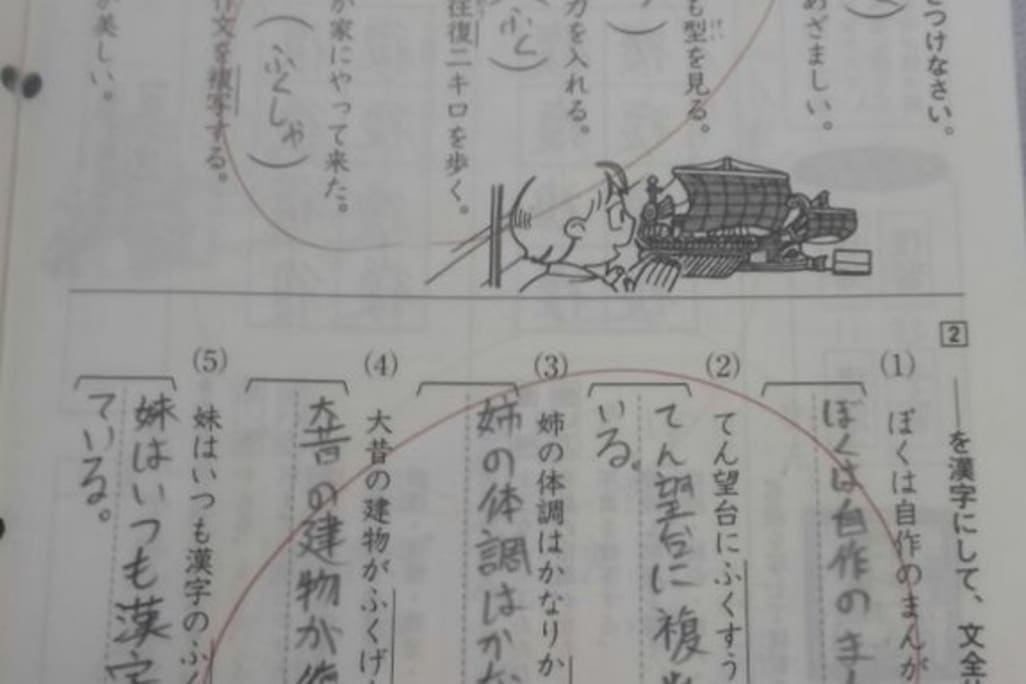 つけなさい。
あざましい。
も型を見る。
けい
力を入れる。
ふく
往復二キロを歩く。
が家にやって来た。
ふくしゃ
作文を複写する。
が美しい。
2
を漢字にして、文全
(1)
ぼくは自作のまんが
ぼくは自作のま
(2)
てん望台にふくすう
てん望台に複数
いる。
(3)
姉の体調はかなりか
姉の体調はかな
(4)
大昔の建物がふくげ
大昔の建物が復
(5)
妹はいつも漢字のふく
妹はいつも漢字
ている。